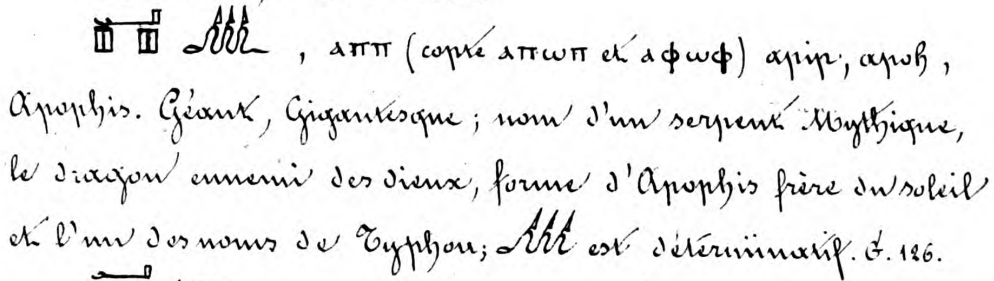 , ⲁⲡⲡ (copte ⲁⲡⲱⲡ et ⲁⲫⲱⲫ) apip, apoh,
Apophis. Géant, Gigantesque; nom d'un serpent Mythique,
le dragon ennemi des dieux, forme d'Apophis frère du soleil
et l'un des noms de Typhon; est déterminatif. G. 126.